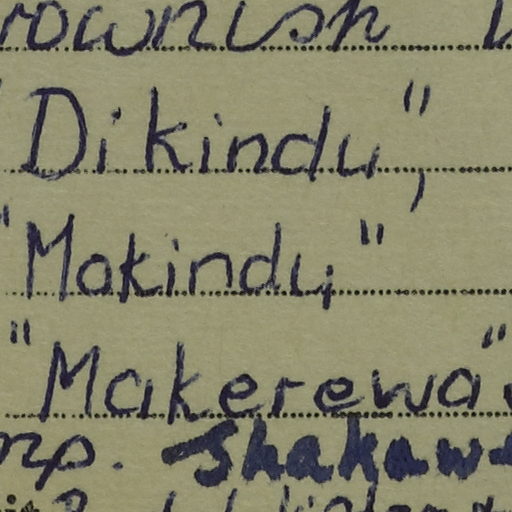 rownish
"Dikindu",
"Mokindu"
"Makerewa"
mp. Shakawe